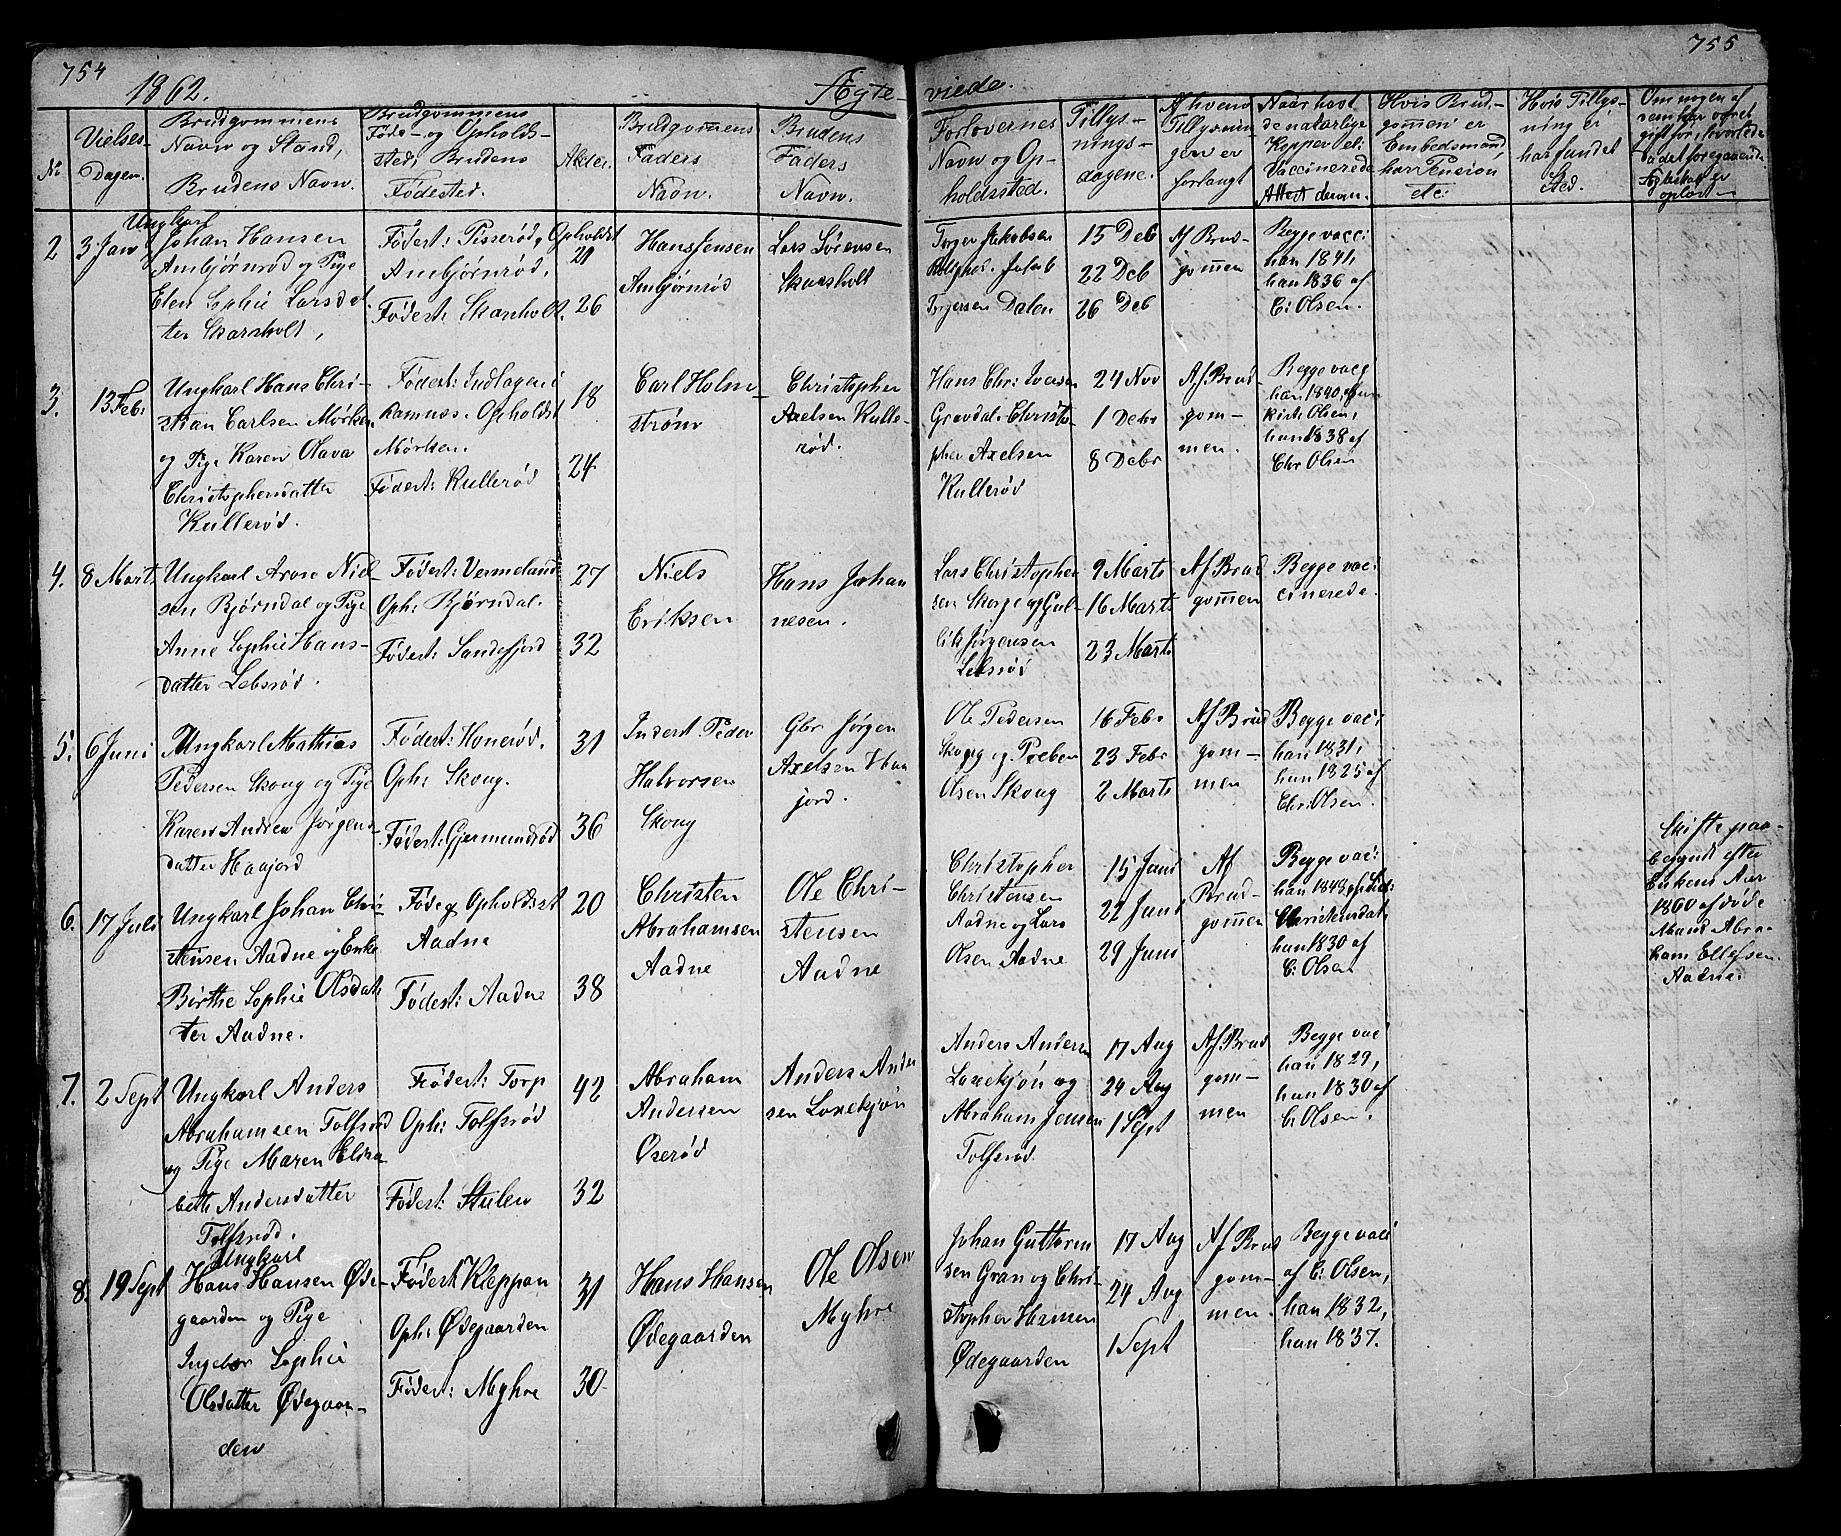 754
755
1862.
Ægte-
viede.
No
Vielses-
Dagen.
Brudgommens
Navn og Stand,
Brudens Navn.
Brudgommens
Føde- og Opholds-
sted; Brudens
Fødested.
Alder.
Brudgommens
Faders
Navn.
Brudens
Faders
Navn.
Forlovernes
Navn og Op-
holdssted.
Tillys-
nings-
dagene.
Af hvem
Tillysnin-
gen er
forlangt
Naar havt
de naturlige
Kopper el:
Vaccinerede
Attest derom.
Hvis Brud-
gommen er
Embedsmand,
har Pension
etc:
Hvis Tillys-
ning ei
har fundet
Sted.
Om nogen af
dem har været
gift før, hvorledes
det foregaaende
Ægteskab er
opløst
2
3 Jan
Ungkarl
Johan Hansen
Ambjørnrød og Pige
Elen Sophie Larsdat-
ter Skarsholt,
Fødest: Pisserød, Opholdst
Ambjørnrød.
Fødest: Skarsholt.
21
26
Hans Jensen
Ambjørnrød
Lars Sørensen
Skarsholt
Torger Jakobsen
Jakob
Torgersen Dalen
15 Deb
22 Deb
26 Deb
Af Brud-
gommen
Begge vacc:
han 1841,
hun 1836 af
C: Olsen.
3.
13 Feb:
Ungkarl Hans Chri-
stian Carlsen Mørken
og Pige Karen Olava
Christophersdatter
Kullerød.
Fødest: Indlageri
Ramnæs. Opholdst
Mørken.
Fødest: Kullerød
18
24
Carl Holm-
strøm
Christopher
Axelsen Kulle-
rød.
Hans Chr: Iversen
Gravdal. Christo-
pher Axelsen
Kullerød
24 Nov
1 Debr
8 Debr
Af Brud-
gom-
men.
Begge vacc
han 1840, af
Olsen,
hun 1838 af
Chr Olsen
4.
8 Mart
Ungkarl Arne Niel-
sen Bjørndal og Pige
Anne Sophie Hans-
datter Lebsrød.
Fødest: Vermeland
Oph: Bjørndal.
Fødest: Sandefjord
27
32
Niels
Eriksen
Hans Johan
nesen.
Lars Christopher
sen Skorge og Gul-
lik Jørgensen
Lebsrød
9 Marts
16 Marts
23 Marts
Af Brud
gommen
Begge vac:
cinerede.
5.
6 Juni
Ungkarl Mathias
Pedersen Skoug og Pige
Karen Andrea Jørgens
datter Haajord
Fødest: Honerød.
Oph: Skoug.
Fødest: Gjermundrød
31
36
Inderst Peder
Halvorsen
Skoug
Gbr Jørgen
Axelsen Haa
jord.
Ole Pedersen
Skoug og Preben
Olsen Skoug
16 Febr
23 Febr
2 Marts
Af Brud
gom-
men
Begge vac:
han 1831,
hun 1825 af
Chr: Olsen.
6.
17 Juli
Ungkarl Johan Chri-
stensen Aadne og Enke
Birthe Sophie Olsdat-
ter Aadne.
Føde og Opholdsst
Aadne
Fødest: Aadne
20
38
Christen
Abrahamsen
Aadne
Ole Chri-
stensen
Aadne
Christopher
Christensen
Aadne og Lars
Olsen Aadne
15 Juni
22 Juni
29 Juni
Af
Brud-
gommen
Begge vac:
han 1843 af
Christensdat.
hun 1830 af
C: Olsen
Skifte paa-
begyndt efter
Enkens Aar
1860 afdøde
Mand Abra-
ham Ellefsen
Aadne.
7.
2 Sept
Ungkarl Anders
Abrahamsen Tolfsrød
og Pige Maren Elisa
beth Andersdatter
Tolfsrød.
Fødest: Torp
Oph: Tolfsrød
Fødest: Stulen
42
32
Abraham
Andersen
Oserød
Anders Ander
sen Laxekjøn
Anders Andersen
Laxekjøn og
Abraham Jensen
Tolfsrød
17 Aug
24 Aug
1 Sept
Af Brud
gom-
men
Begge vac
han 1829,
hun 1830 af
C: Olsen.
8.
19 Sept
Ungkarl
Hans Hansen Øde-
gaarden og Pige
Ingebor Sophie
Olsdatter Ødegaar-
den
Fødest Kleppan
Oph: Ødegaarden
Fødest: Myhre
31
30
Hans Hansen
Ødegaarden
Ole Olsen
Myhre
Johan Guttorm
sen Gran og Chri-
stopher Hansen
Ødegaarden
17 Aug
24 Aug
1 Sept
Af Brud
gom-
men.
Begge vac
af C: Olsen,
han 1832,
hun 1837.